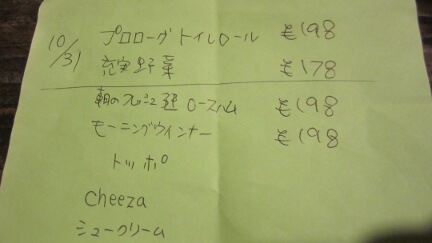 10/31 プロローグトイレロール ¥198
充実野菜 ¥178
朝のフレッシュ ロースハム ¥198
モーニングウインナー ¥198
トッポ
Cheeza
シュークリーム